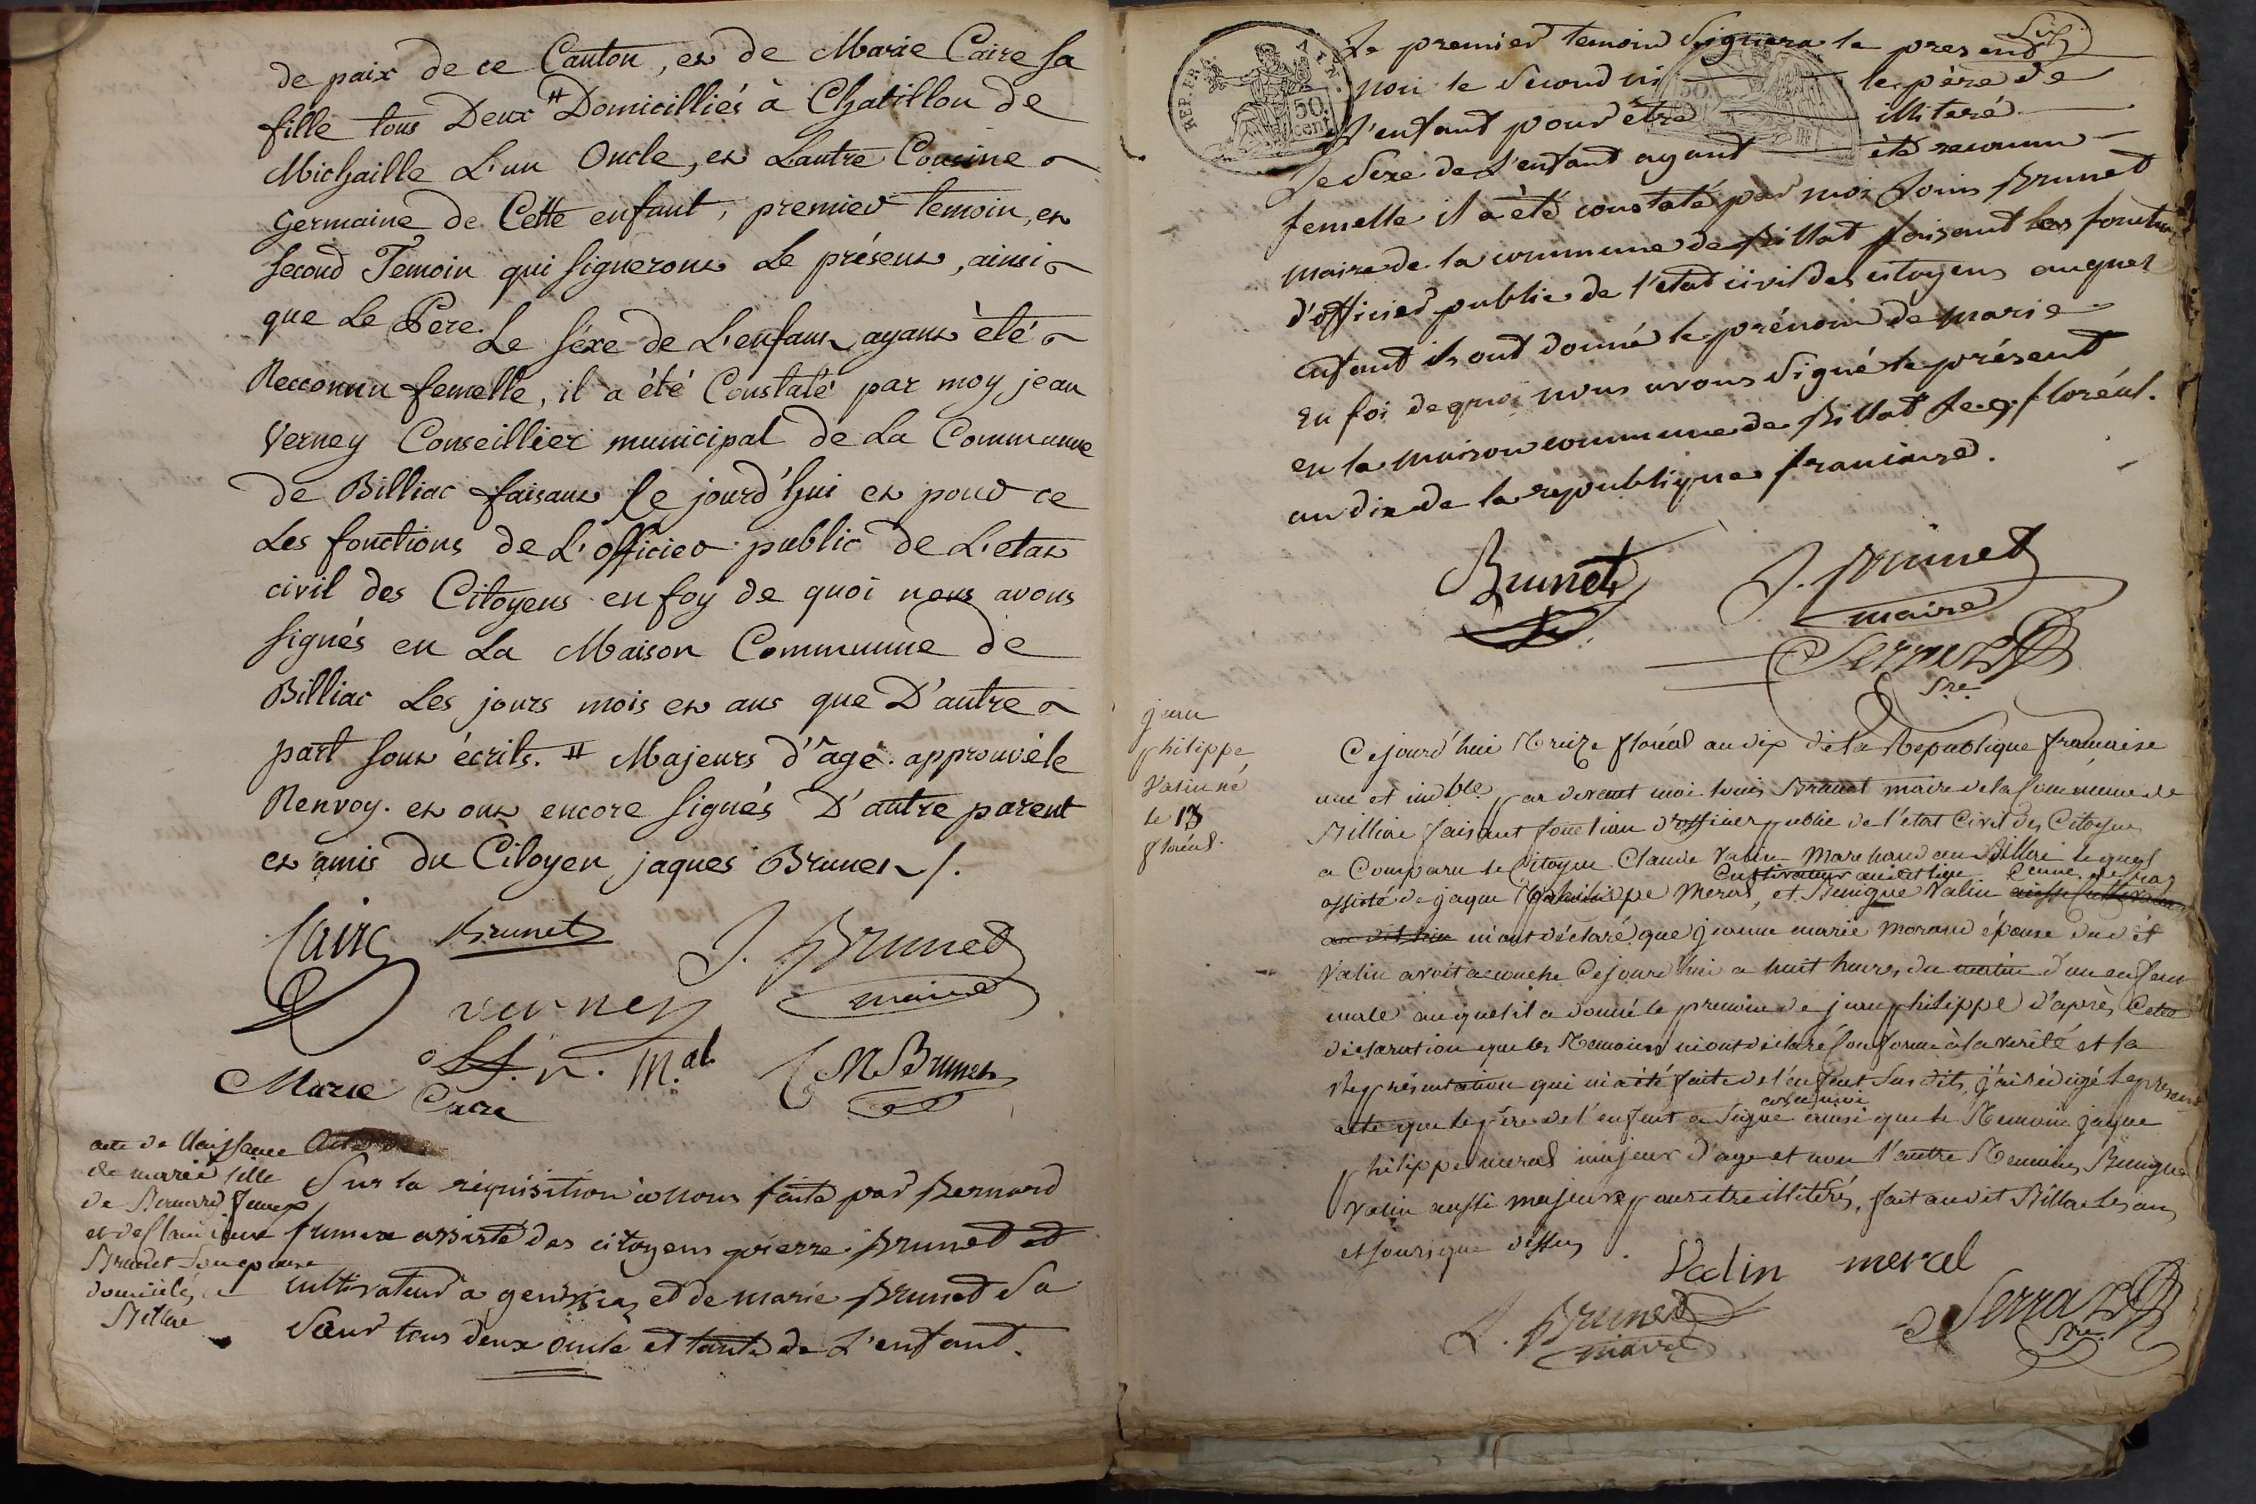 de paix de ce Canton, et de Marie Caire sa
fille tous Deux # Domicilliés à Chatillon de
Michaille L'un Oncle, et Lautre Cousine
germaine de Cette enfant, premier temoin, et
second Temoin qui signeront Le présent, ainsi
que Le Pere. Le sèxe de L'enfant ayant èté
Reconnu femelle, il a èté Constaté par moy jean
Verney Conseillier municipal de La Commune
de Billiac faisant Ce jourd'hui et pour ce
Les fonctions de L'officier public de L'etat
civil des Citoyens en foy de quoi nous avons
signés en La Maison Commune de
Billiac Les jours mois et ans que D'autre
part sont écrits. # Majeurs d'age. approuvé le
Renvoy. et ont encore signés D'autre parent
et amis du Citoyen jaques Brunet /.
Caire Brunet J. Brunet
verney maire
off. m. M.al C M Brunet
Marie Caire
acte de Naissance
de marie fille
de Bernard fumex
et de
Brunet son epouse
domicilés a
Billac
Sur la réquisition à nous faite par Bernard
fumex assisté des citoyens pierre Brunet et
cultivateur a genissia et de marie Brunet Sa
Sœur tous deux oncle et tante de L'enfant.
REP. FRA. 50 cent
Le premier temoin Signera le present
non le Second ni le père de
L'enfant pour être illiteré
Le Sexe de L'enfant ayant été reconnu
femelle il a èté constaté par moi Louis Brunet
maire de la commune de Billat faisant les fonctions
d'officier public de l'etat civil des citoyens auquel
enfant ils ont donné le prénom de marie
en foi de quoi nous avons Signé le présent
en la maison commune de Billat le 9 floréal.
an dix de la republique francaise.
Brunet J. Brunet
maire
Serraz
Sre
jean
philippe
Valin né
le 13
floréal.
Cejourd'hui Treize floréal an dix de la Republique francaise
une et indble par devant moi louis Brunet maire de la Commune de
Billiac faisant fonction d'officier public de l'etat Civil des Citoyens
a Comparu le Citoyen Claude Valin Marchand au Billac lequel
Cultivateur audit lieu
assisté de jaque philippe Meral, et Benigne Valin aussi Cultivateur
au dit lieu m'ont déclaré que jeanne marie Morand épouse dudit
Valin avoit accouché Cejourd'hui a huit heures du matin d'un enfant
male auquel il a donné le prenom de jean philippe d'après Cette
déclaration que les Temoins m'ont déclaré Conforme à la verité et la
Représentation qui m'a été faite de l'enfant Sus dit, j'ai rédigé le present
avec moi
acte que le père de l'enfant a Signé ainsi que le Temoin jaque
philippe meral majeur d'age et non l'autre Temoin Benigne
Valin aussi majeur pour etre illitéré, fait au dit Billac les an
et jour que dessus.
Valin meral
L. Brunet Serraz
maire Sre